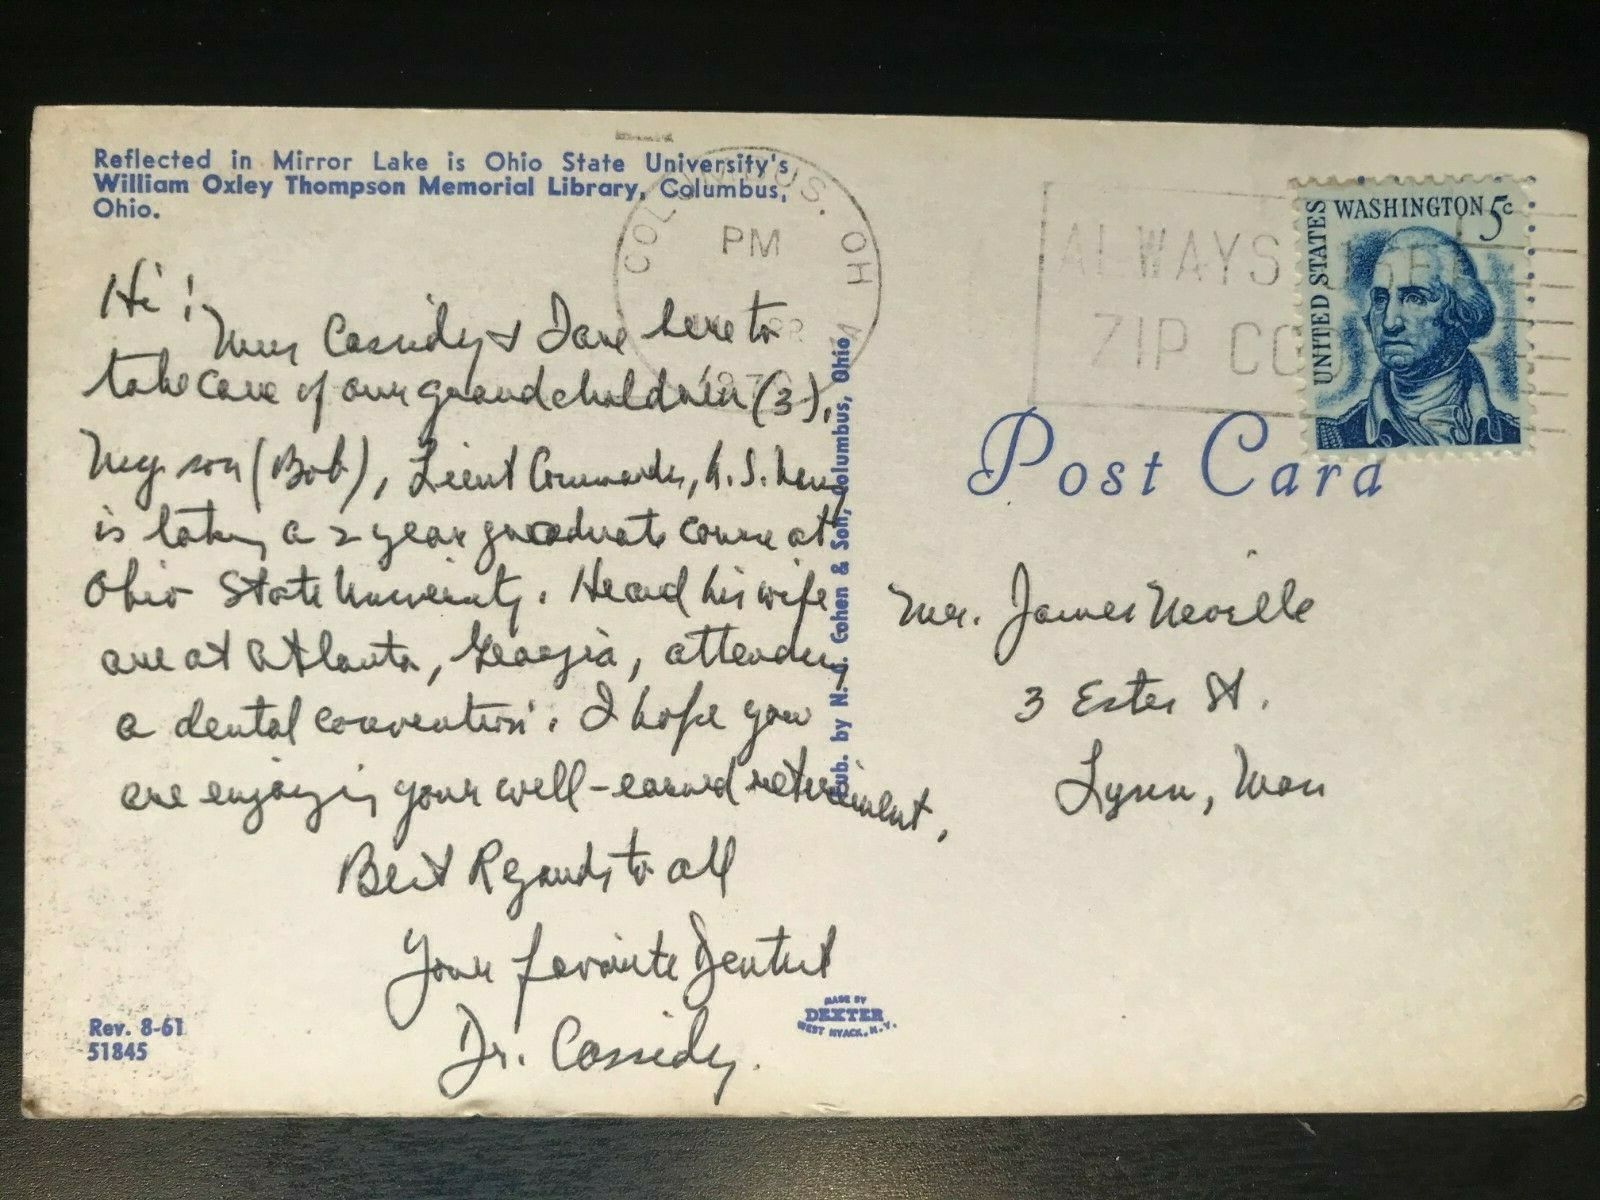 Reflected in Mirror Lake is Ohio State University's
William Oxley Thompson Memorial Library, Columbus,
Ohio.
Hi!
Mrs Cassidy & I are here to
take care of our grandchildren (3),
My son (Bob), Lieut Commander, U.S. Navy
is taking a 2 year graduate course at
Ohio State University. He and his wife
are at Atlanta, Georgia, attending
a dental convention. I hope you
are enjoying your well-earned retirement.
Best Regards to all
Your favorite Dentist
Dr. Cassidy.
Rev. 8-61
51845
Pub. by N. Cohen & Son, Columbus, Ohio
MADE BY
DEXTER
WEST NYACK, N.Y.
COLUMBUS, OH
PM
ALWAYS USE
ZIP CO
UNITED STATES
WASHINGTON 5c
Post Card
Mr. James Neville
3 Ester St.
Lynn, Mass